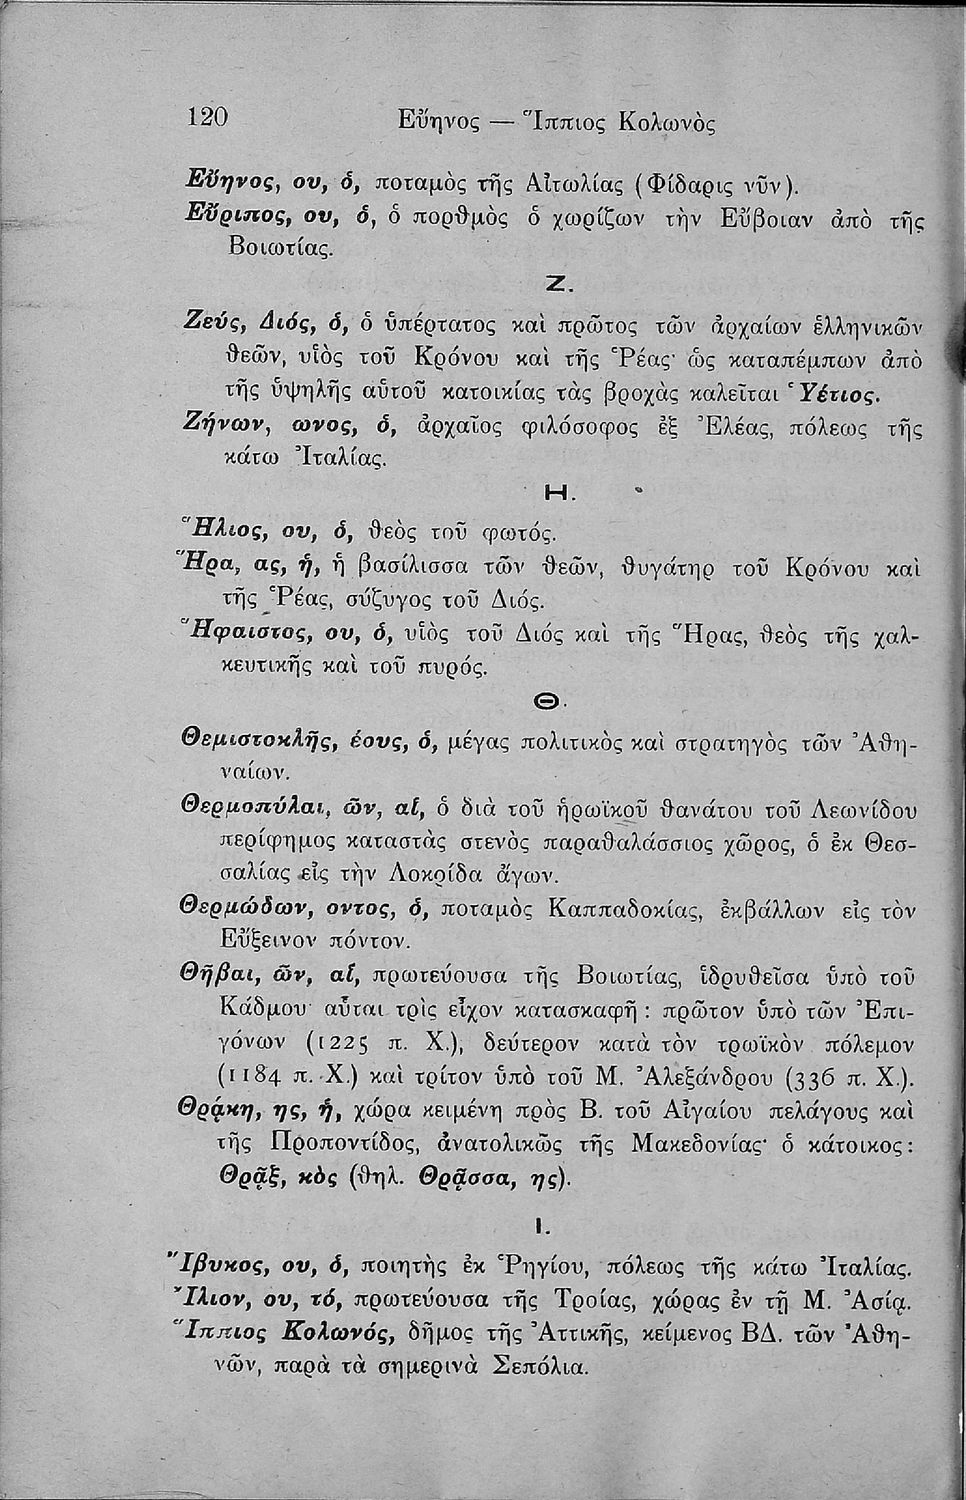 120 Εὔηνος — Ἵππιος Κολωνὸς
Εὔηνος, ου, ὁ, ποταμὸς τῆς Αἰτωλίας (Φίδαρις νῦν).
Εὔριπος, ου, ὁ, ὁ πορθμὸς ὁ χωρίζων τὴν Εὔβοιαν ἀπὸ τῆς
Βοιωτίας.
Ζ.
Ζεύς, Διός, ὁ, ὁ ὑπέρτατος καὶ πρῶτος τῶν ἀρχαίων ἑλληνικῶν
θεῶν, υἱὸς τοῦ Κρόνου καὶ τῆς Ῥέας· ὡς καταπέμπων ἀπὸ
τῆς ὑψηλῆς αὑτοῦ κατοικίας τὰς βροχὰς καλεῖται Ὑέτιος.
Ζήνων, ωνος, ὁ, ἀρχαῖος φιλόσοφος ἐξ Ἐλέας, πόλεως τῆς
κάτω Ἰταλίας.
Η.
Ἥλιος, ου, ὁ, θεὸς τοῦ φωτός.
Ἥρα, ας, ἡ, ἡ βασίλισσα τῶν θεῶν, θυγάτηρ τοῦ Κρόνου καὶ
τῆς Ῥέας, σύζυγος τοῦ Διός.
Ἥφαιστος, ου, ὁ, υἱὸς τοῦ Διός καὶ τῆς Ἥρας, θεὸς τῆς χαλ-
κευτικῆς καὶ τοῦ πυρός.
Θ.
Θεμιστοκλῆς, έους, ὁ, μέγας πολιτικὸς καὶ στρατηγὸς τῶν Ἀθη-
ναίων.
Θερμοπύλαι, ῶν, αἱ, ὁ διὰ τοῦ ἡρωϊκοῦ θανάτου τοῦ Λεωνίδου
περίφημος καταστὰς στενὸς παραθαλάσσιος χῶρος, ὁ ἐκ Θεσ-
σαλίας εἰς τὴν Λοκρίδα ἄγων.
Θερμώδων, οντος, ὁ, ποταμὸς Καππαδοκίας, ἐκβάλλων εἰς τὸν
Εὔξεινον πόντον.
Θῆβαι, ῶν, αἱ, πρωτεύουσα τῆς Βοιωτίας, ἱδρυθεῖσα ὑπὸ τοῦ
Κάδμου· αὗται τρὶς εἶχον κατασκαφῆ: πρῶτον ὑπὸ τῶν Ἐπι-
γόνων (1225 π. Χ.), δεύτερον κατὰ τὸν τρωϊκὸν πόλεμον
(1184 π. Χ.) καὶ τρίτον ὑπὸ τοῦ Μ. Ἀλεξάνδρου (336 π. Χ.).
Θρᾴκη, ης, ἡ, χώρα κειμένη πρὸς Β. τοῦ Αἰγαίου πελάγους καὶ
τῆς Προποντίδος, ἀνατολικῶς τῆς Μακεδονίας· ὁ κάτοικος:
Θρᾷξ, κὸς (θηλ. Θρᾷσσα, ης).
Ι.
Ἴβυκος, ου, ὁ, ποιητὴς ἐκ Ῥηγίου, πόλεως τῆς κάτω Ἰταλίας.
Ἴλιον, ου, τό, πρωτεύουσα τῆς Τροίας, χώρας ἐν τῇ Μ. Ἀσίᾳ.
Ἵππιος Κολωνός, δῆμος τῆς Ἀττικῆς, κείμενος ΒΔ. τῶν Ἀθη-
νῶν, παρὰ τὰ σημερινὰ Σεπόλια.